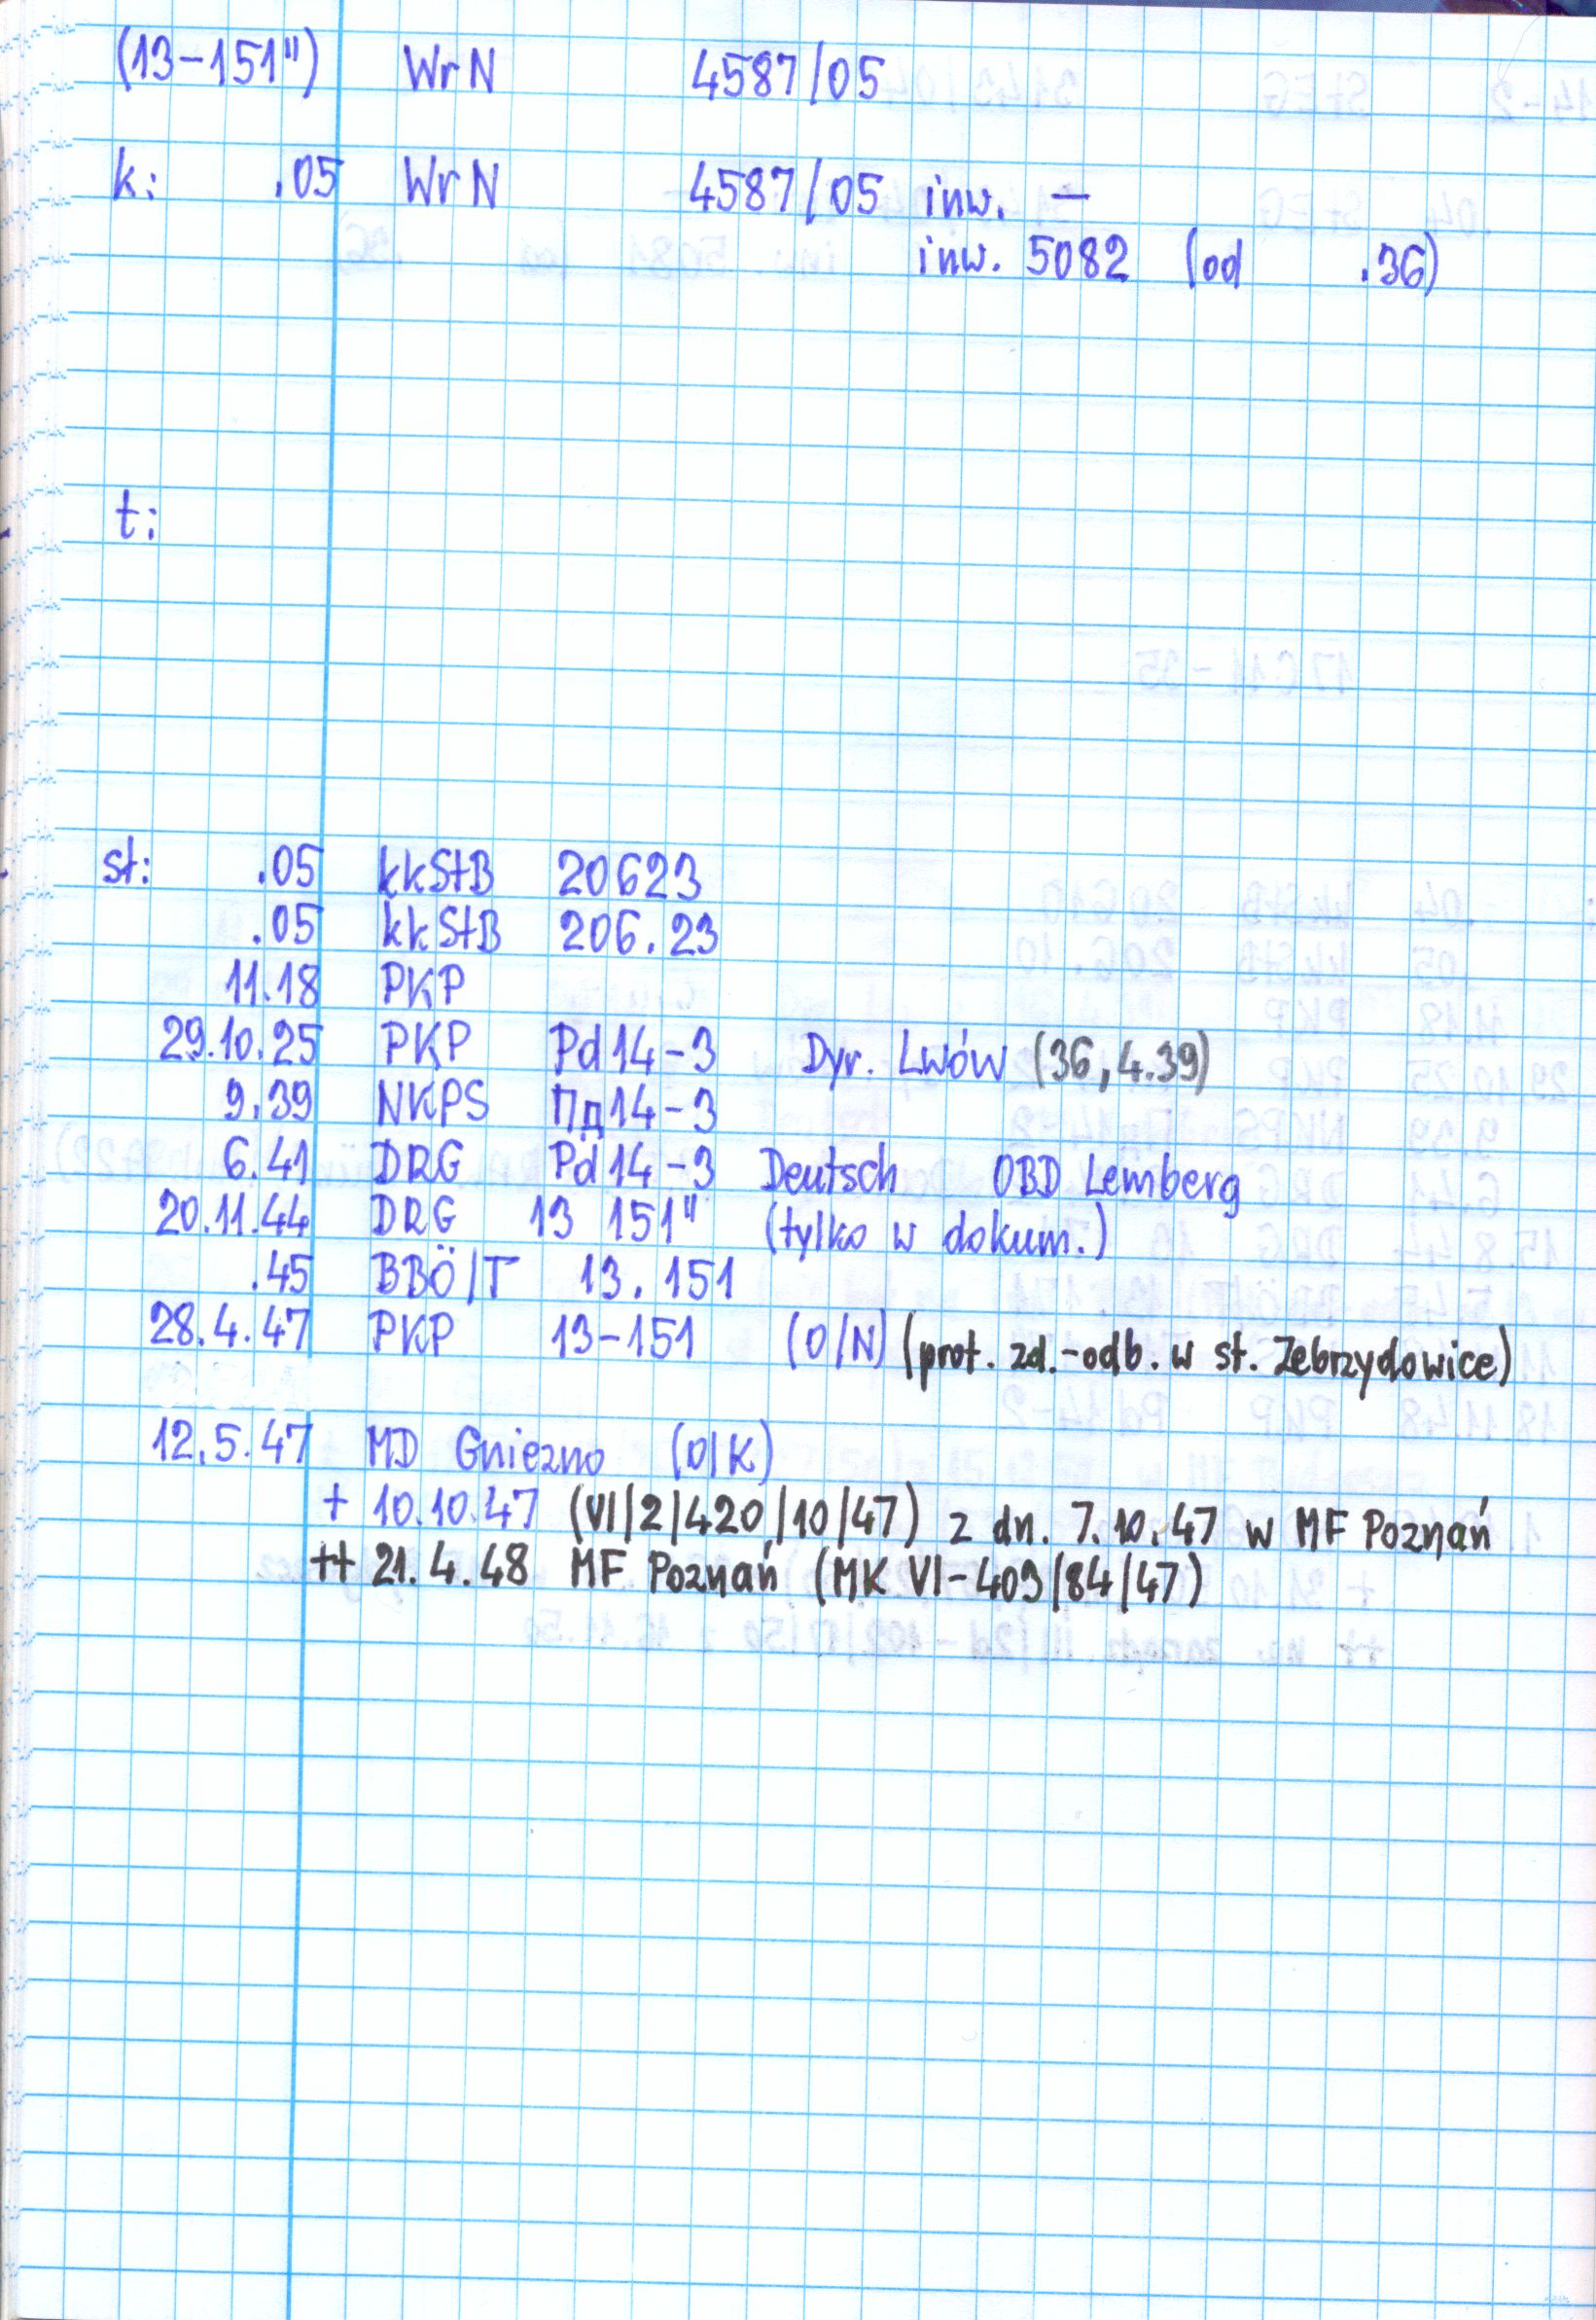 (13-151") WrN 4587/05
k: .05 WrN 4587/05 inw. —
inw. 5082 (od .36)
t:
st: .05 kkStB 20623
.05 kkStB 206.23
11.18 PKP
29.10.25 PKP Pd14-3 Dyr. Lwów (36, 4.39)
9.39 NKPS Пд14-3
6.41 DRG Pd14-3 Deutsch OBD Lemberg
20.11.44 DRG 13 151" (tylko w dokum.)
.45 BBÖ/T 13.151
28.4.47 PKP 13-151 (O/N) (prot. zd.-odb. w st. Zebrzydowice)
12.5.47 MD Gniezno (O/K)
+ 10.10.47 (VI/2/420/10/47) z dn. 7.10.47 w MF Poznań
++ 21.4.48 MF Poznań (MK VI-409/84/47)